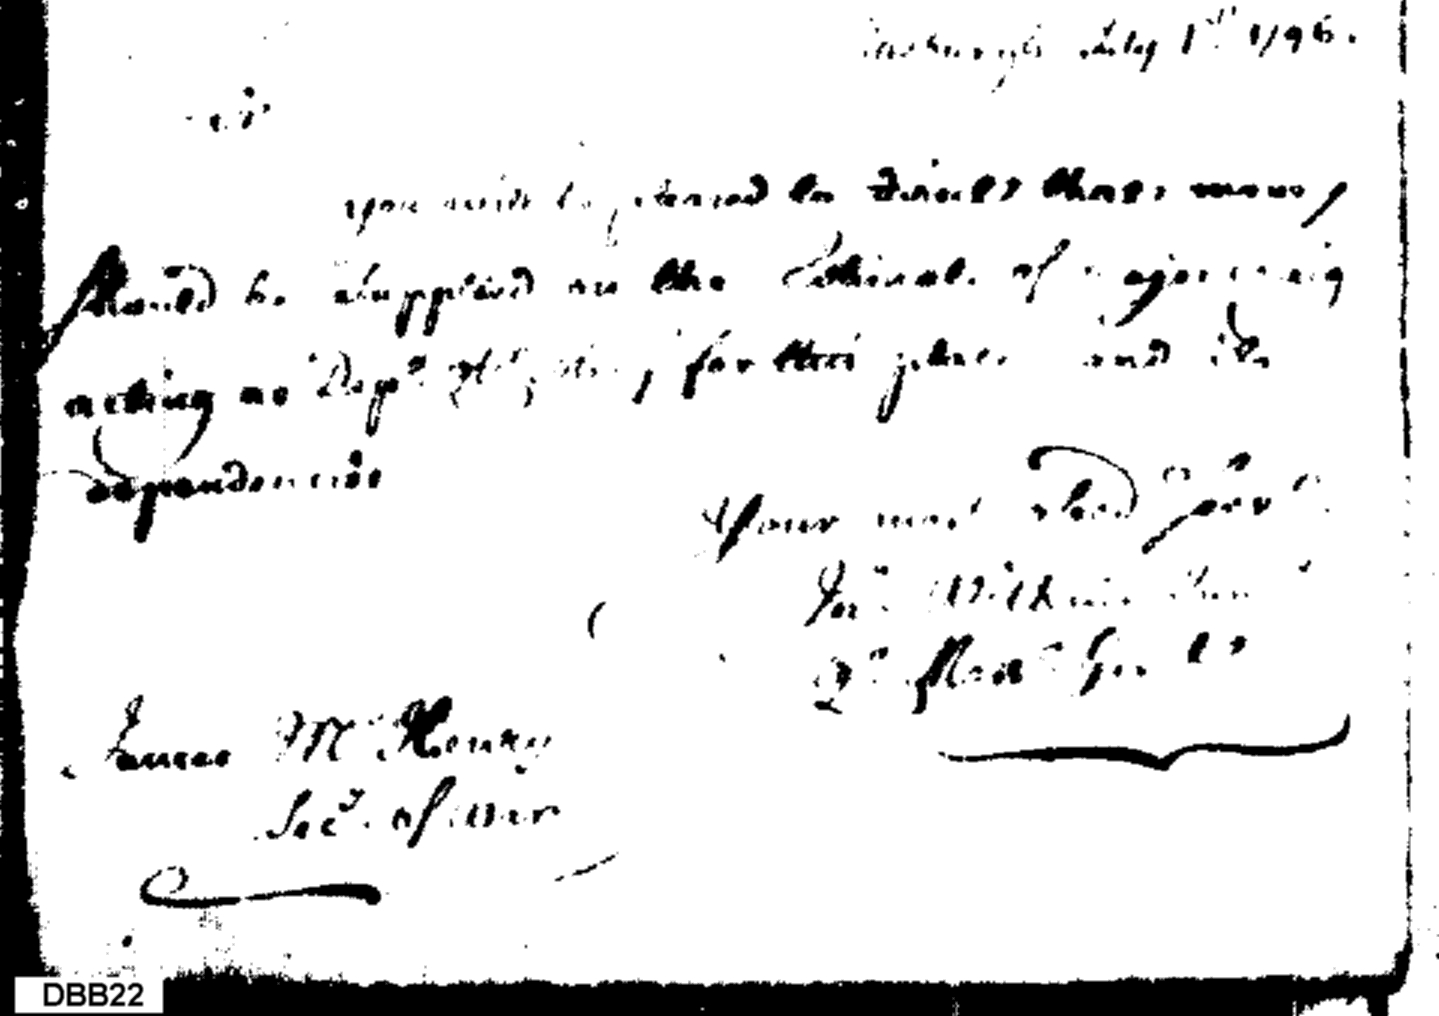 Pittsburgh July 1st 1796.
Sir
You will be pleased to direct that money
should be supplied on the Estimate of Major Craig
acting as Depy Qr Mr, for this place and its
dependencies
Your most obed Servt
Jno Wilkins Junr
Qr Mastr Genl
James McHenry
Secy of War
DBB22